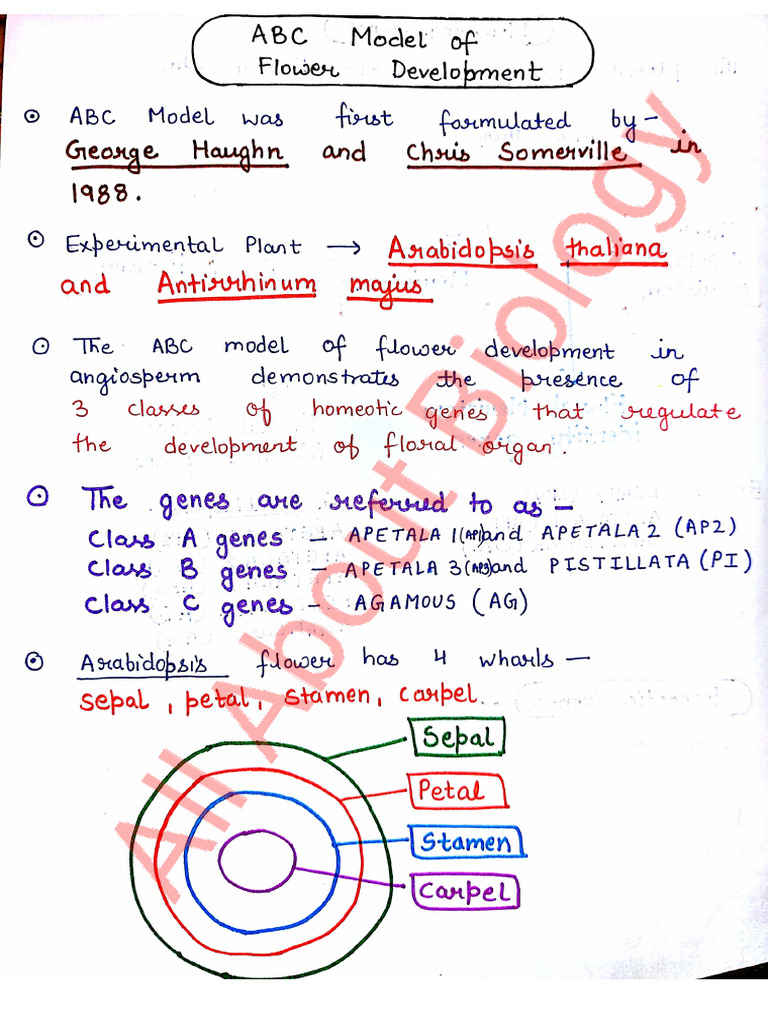 ABC Model of
Flower Development
ABC Model was first formulated by -
George Haughn and Chris Somerville in
1988.
Experimental Plant → Arabidopsis thaliana
and Antirrhinum majus
The ABC model of flower development in
angiosperm demonstrates the presence of
3 classes of homeotic genes that regulate
the development of floral organ.
The genes are referred to as -
Class A genes - APETALA 1(AP1)and APETALA 2 (AP2)
Class B genes - APETALA 3(AP3)and PISTILLATA (PI)
Class C genes - AGAMOUS (AG)
Arabidopsis flower has 4 wharls -
Sepal, petal, stamen, carpel.
Sepal
Petal
Stamen
Carpel
All About Biology